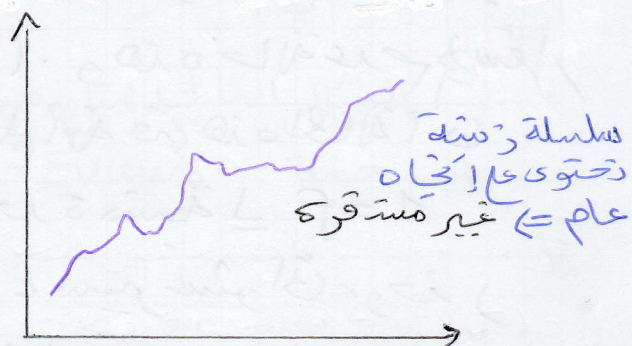 سلسلة زمنية
تحتوي على إتجاه
عام <= غير مستقرة